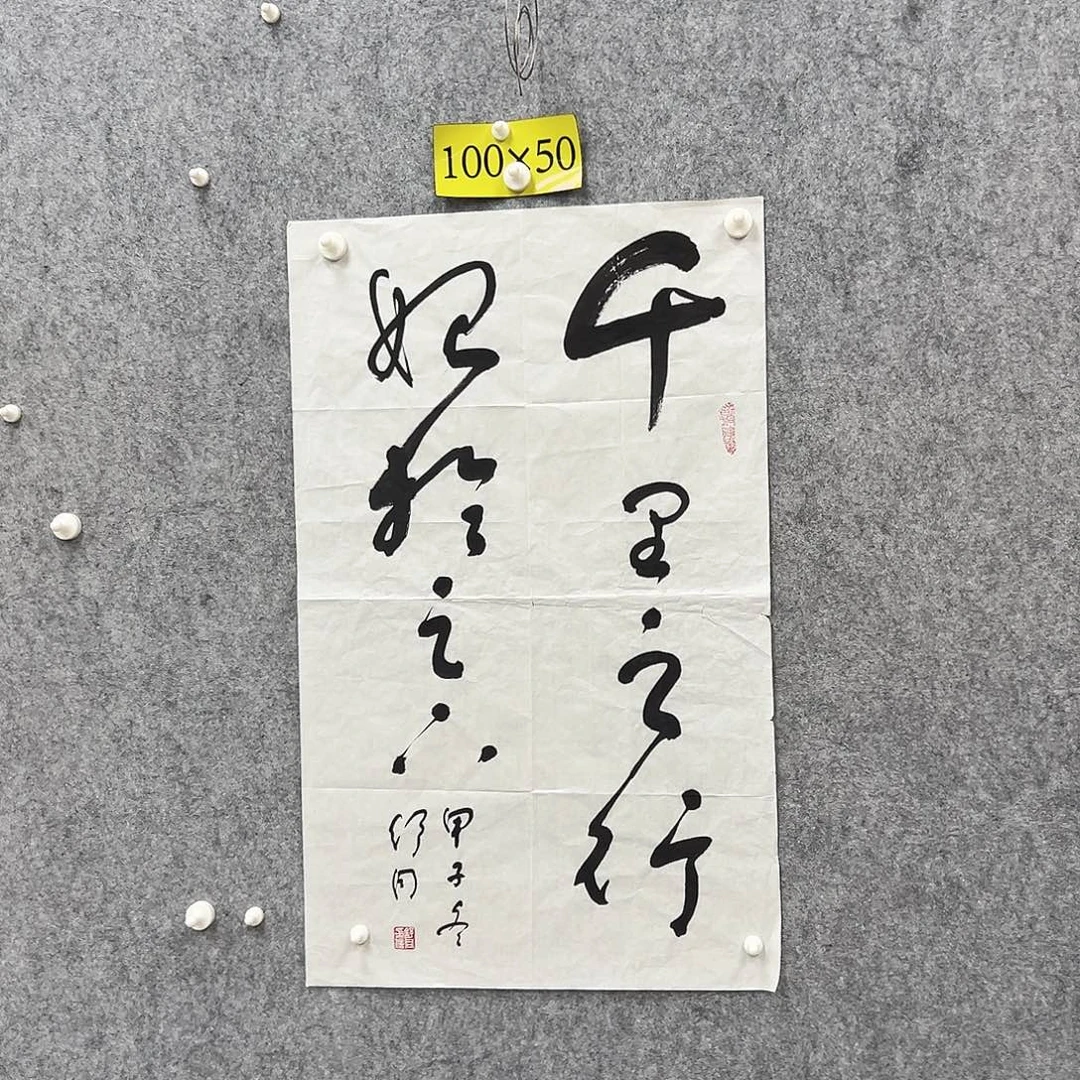 100×50
千里之行
始於足下
甲子冬
舒同